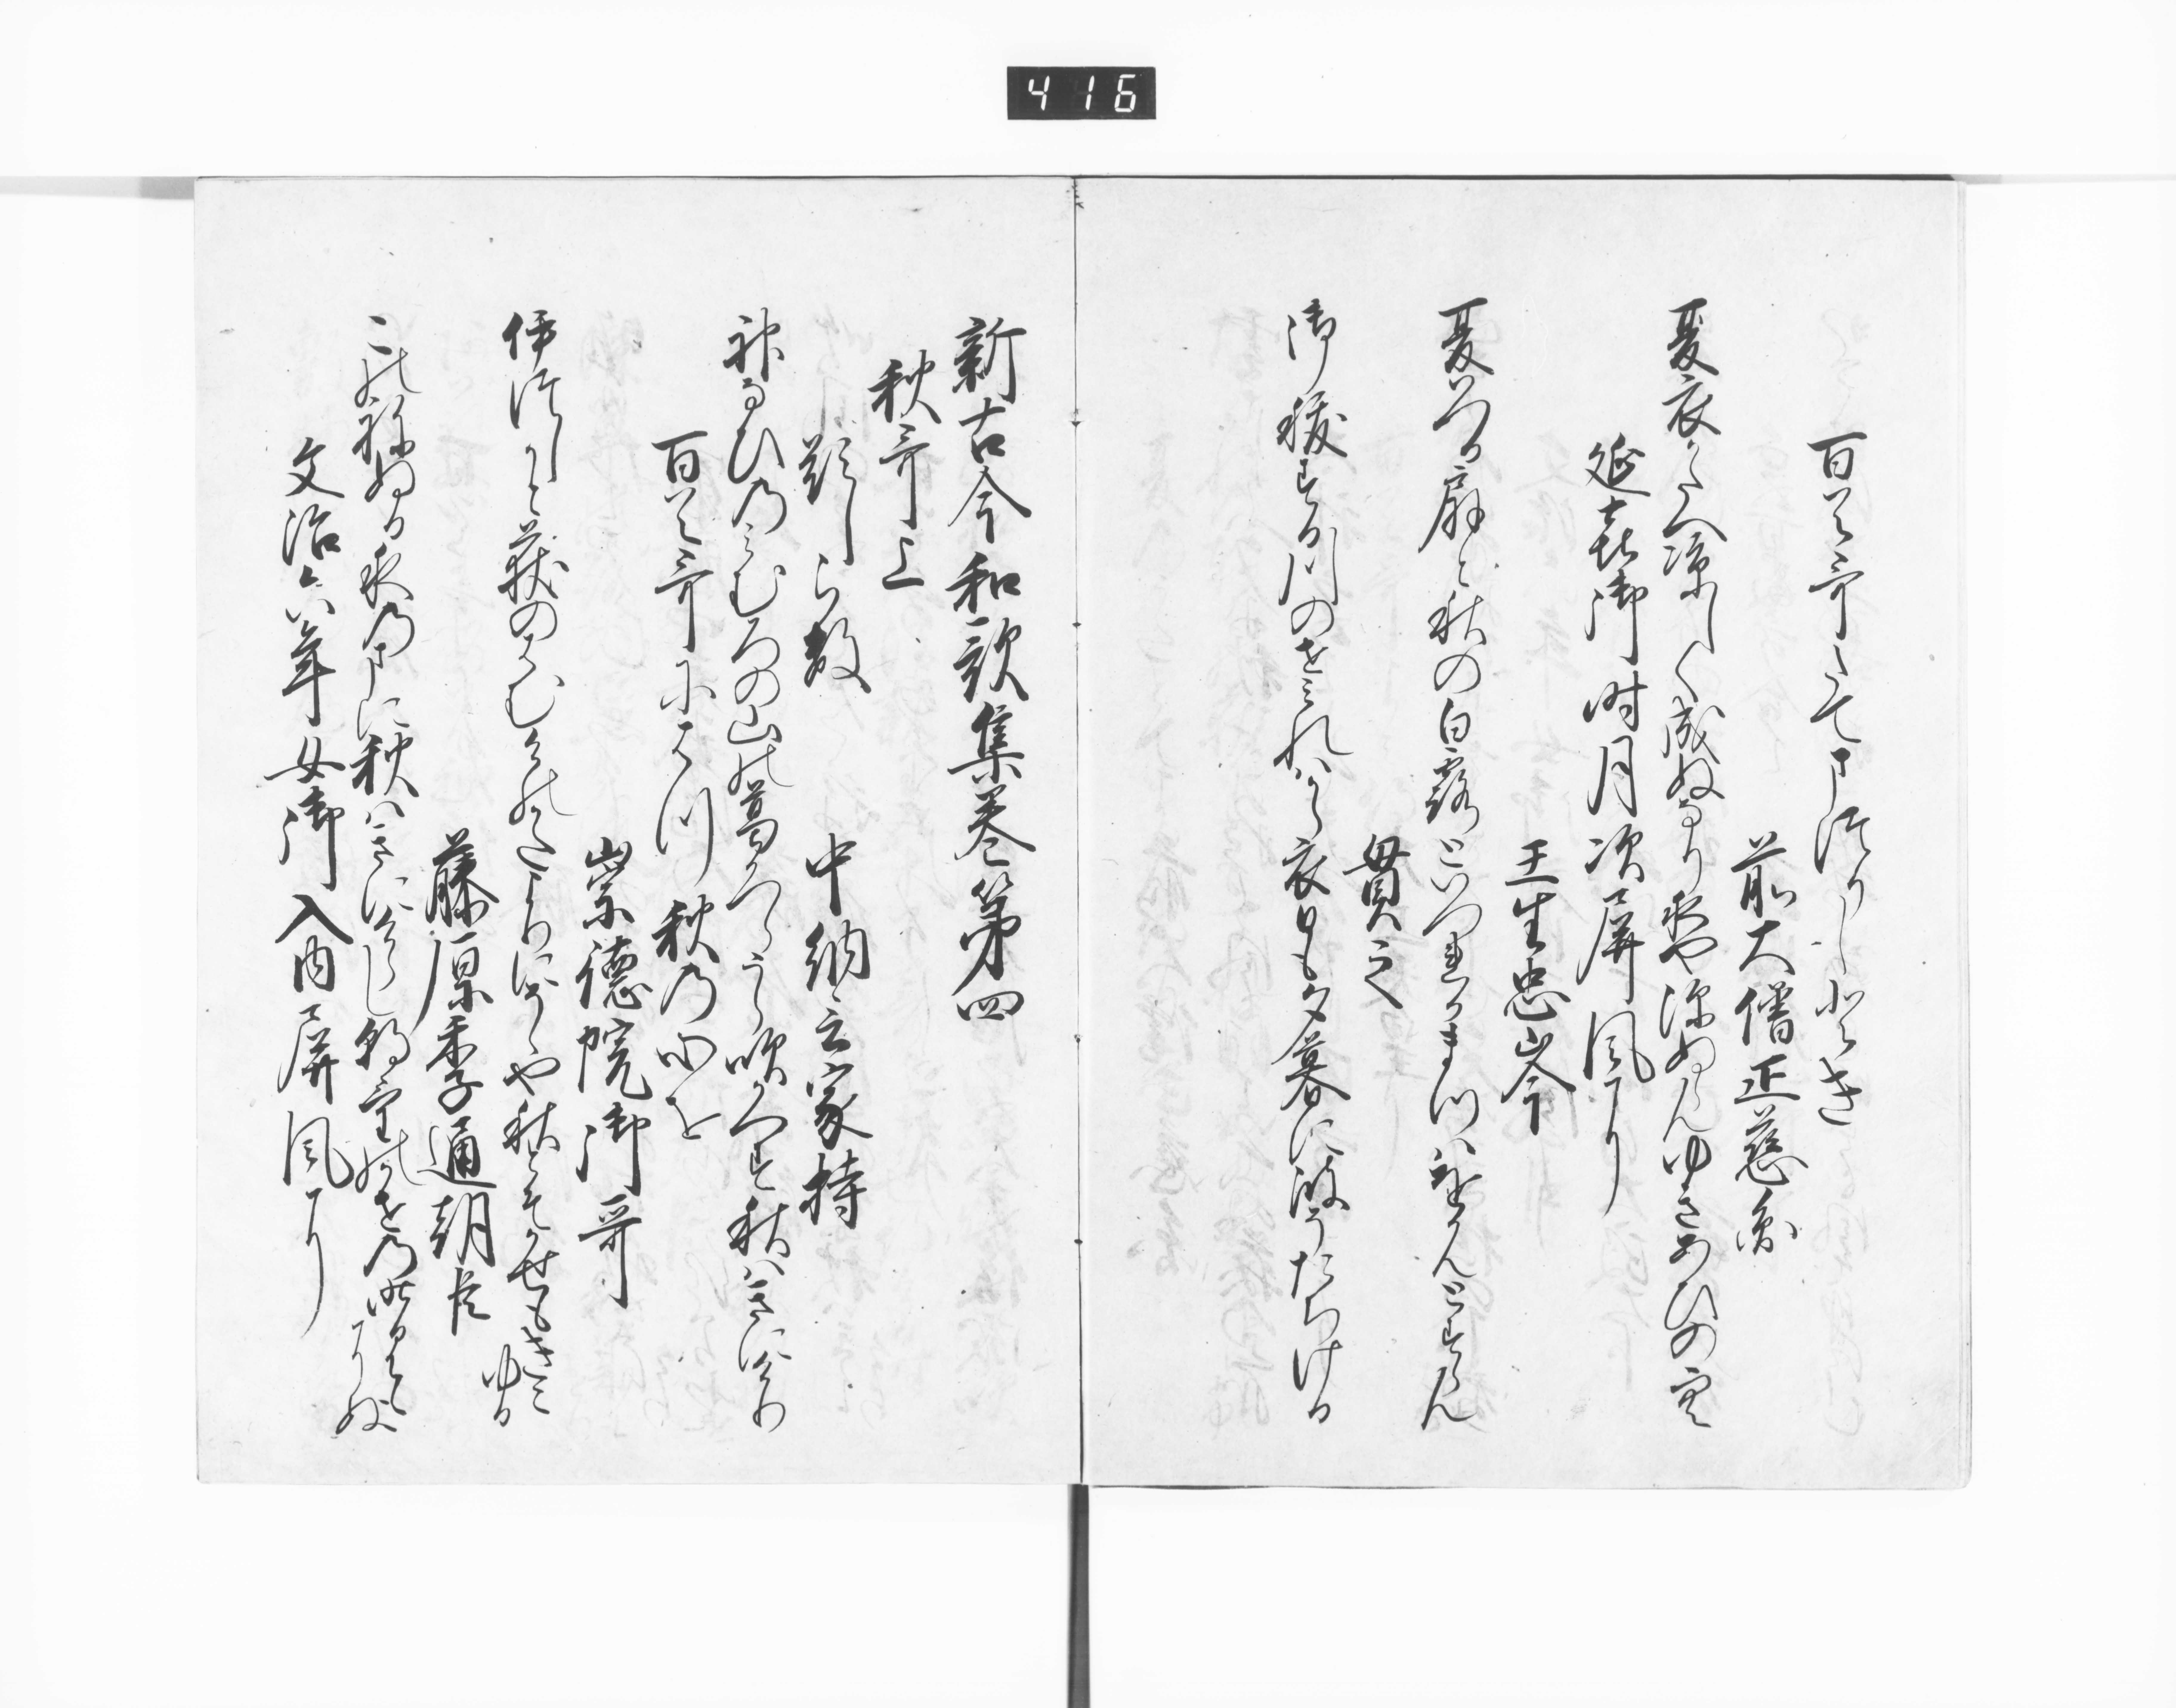 416
百首哥たてまつりしとき
前大僧正慈円
夏衣かたへ涼しく成ぬなり夜や深ぬらんゆきあひの空
延喜御時月次屏風に
壬生忠岑
夏はつる扇と秋の白露といつれかまつはをかんとすらん
貫之
御祓する川のせみれはから衣日も夕暮に波そたちける
新古今和歌集巻第四
秋哥上
題しらす
中納言家持
神なひのみむろの山の葛かつらうら吹かへす秋はきにけり
百首哥にはつ秋の心を
崇徳院御哥
いつしかと荻のはむけのかたよりにそゝや秋とそかせもきこゆる
藤原季通朝臣
このねぬる夜のまに秋はきにけらし朝けの風の昨日にもにぬ
文治六年女御入内屏風に